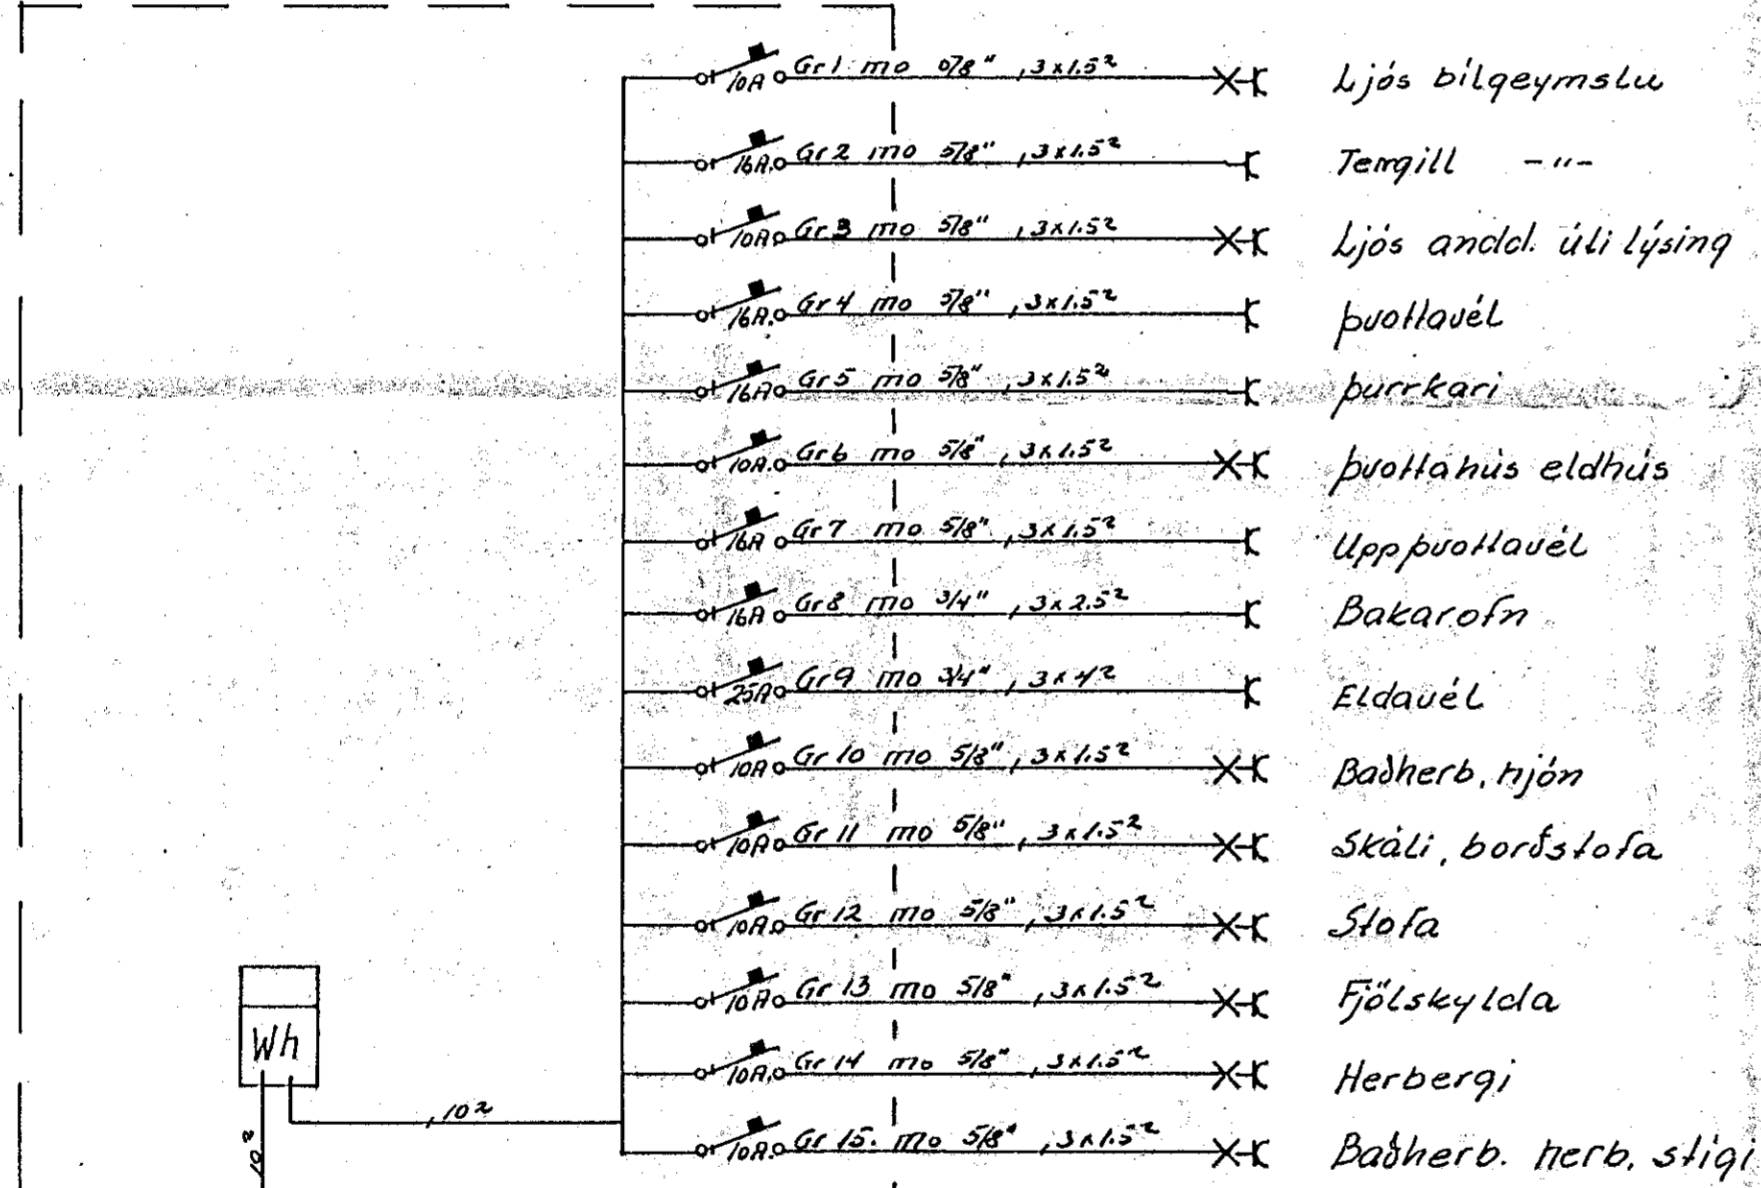 10A Gr1 mo 5/8" , 3x1.5² Ljós bílgeymslu
16A. Gr2 mo 5/8" , 3x1.5² Tengill -"-
10A Gr3 mo 5/8" , 3x1.5² Ljós andd. úti lýsing
16A. Gr4 mo 5/8" , 3x1.5² þvottavél
16A Gr5 mo 5/8" , 3x1.5² þurrkari
10A. Gr6 mo 5/8" , 3x1.5² þvottahús eldhús
16A Gr7 mo 5/8" , 3x1.5² Uppþvottavél
16A Gr8 mo 3/4" , 3x2.5² Bakarofn
25A Gr9 mo 3/4" , 3x4² Eldavél
10A Gr10 mo 5/8" , 3x1.5² Baðherb. hjón
10A Gr11 mo 5/8" , 3x1.5² Skáli, borðstofa
10A. Gr12 mo 5/8" , 3x1.5² Stofa
10A Gr13 mo 5/8" , 3x1.5² Fjölskylda
Wh
10A. Gr14 mo 5/8" , 3x1.5² Herbergi
, 10²
10²
10A. Gr15. mo 5/8" , 3x1.5² Baðherb. herb. stigi